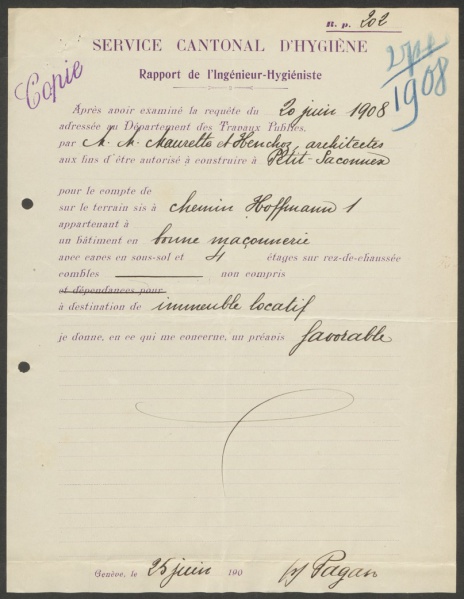 R. p. 202
SERVICE CANTONAL D'HYGIÈNE
Copie
1908
Rapport de l'Ingénieur-Hygiéniste
Après avoir examiné la requête du 20 juin 1908
adressée au Département des Travaux Publics,
par M. M. Mauretto et Henchoz, architectes
aux fins d'être autorisé à construire à Petit-Saconnex
pour le compte de
sur le terrain sis à chemin Hoffmann 1
appartenant à
un bâtiment en bonne maçonnerie
avec caves en sous-sol et 4 étages sur rez-de-chaussée
combles non compris
et dépendances pour
à destination de immeuble locatif
je donne, en ce qui me concerne, un préavis favorable
Genève, le 25 juin 190 Pagan